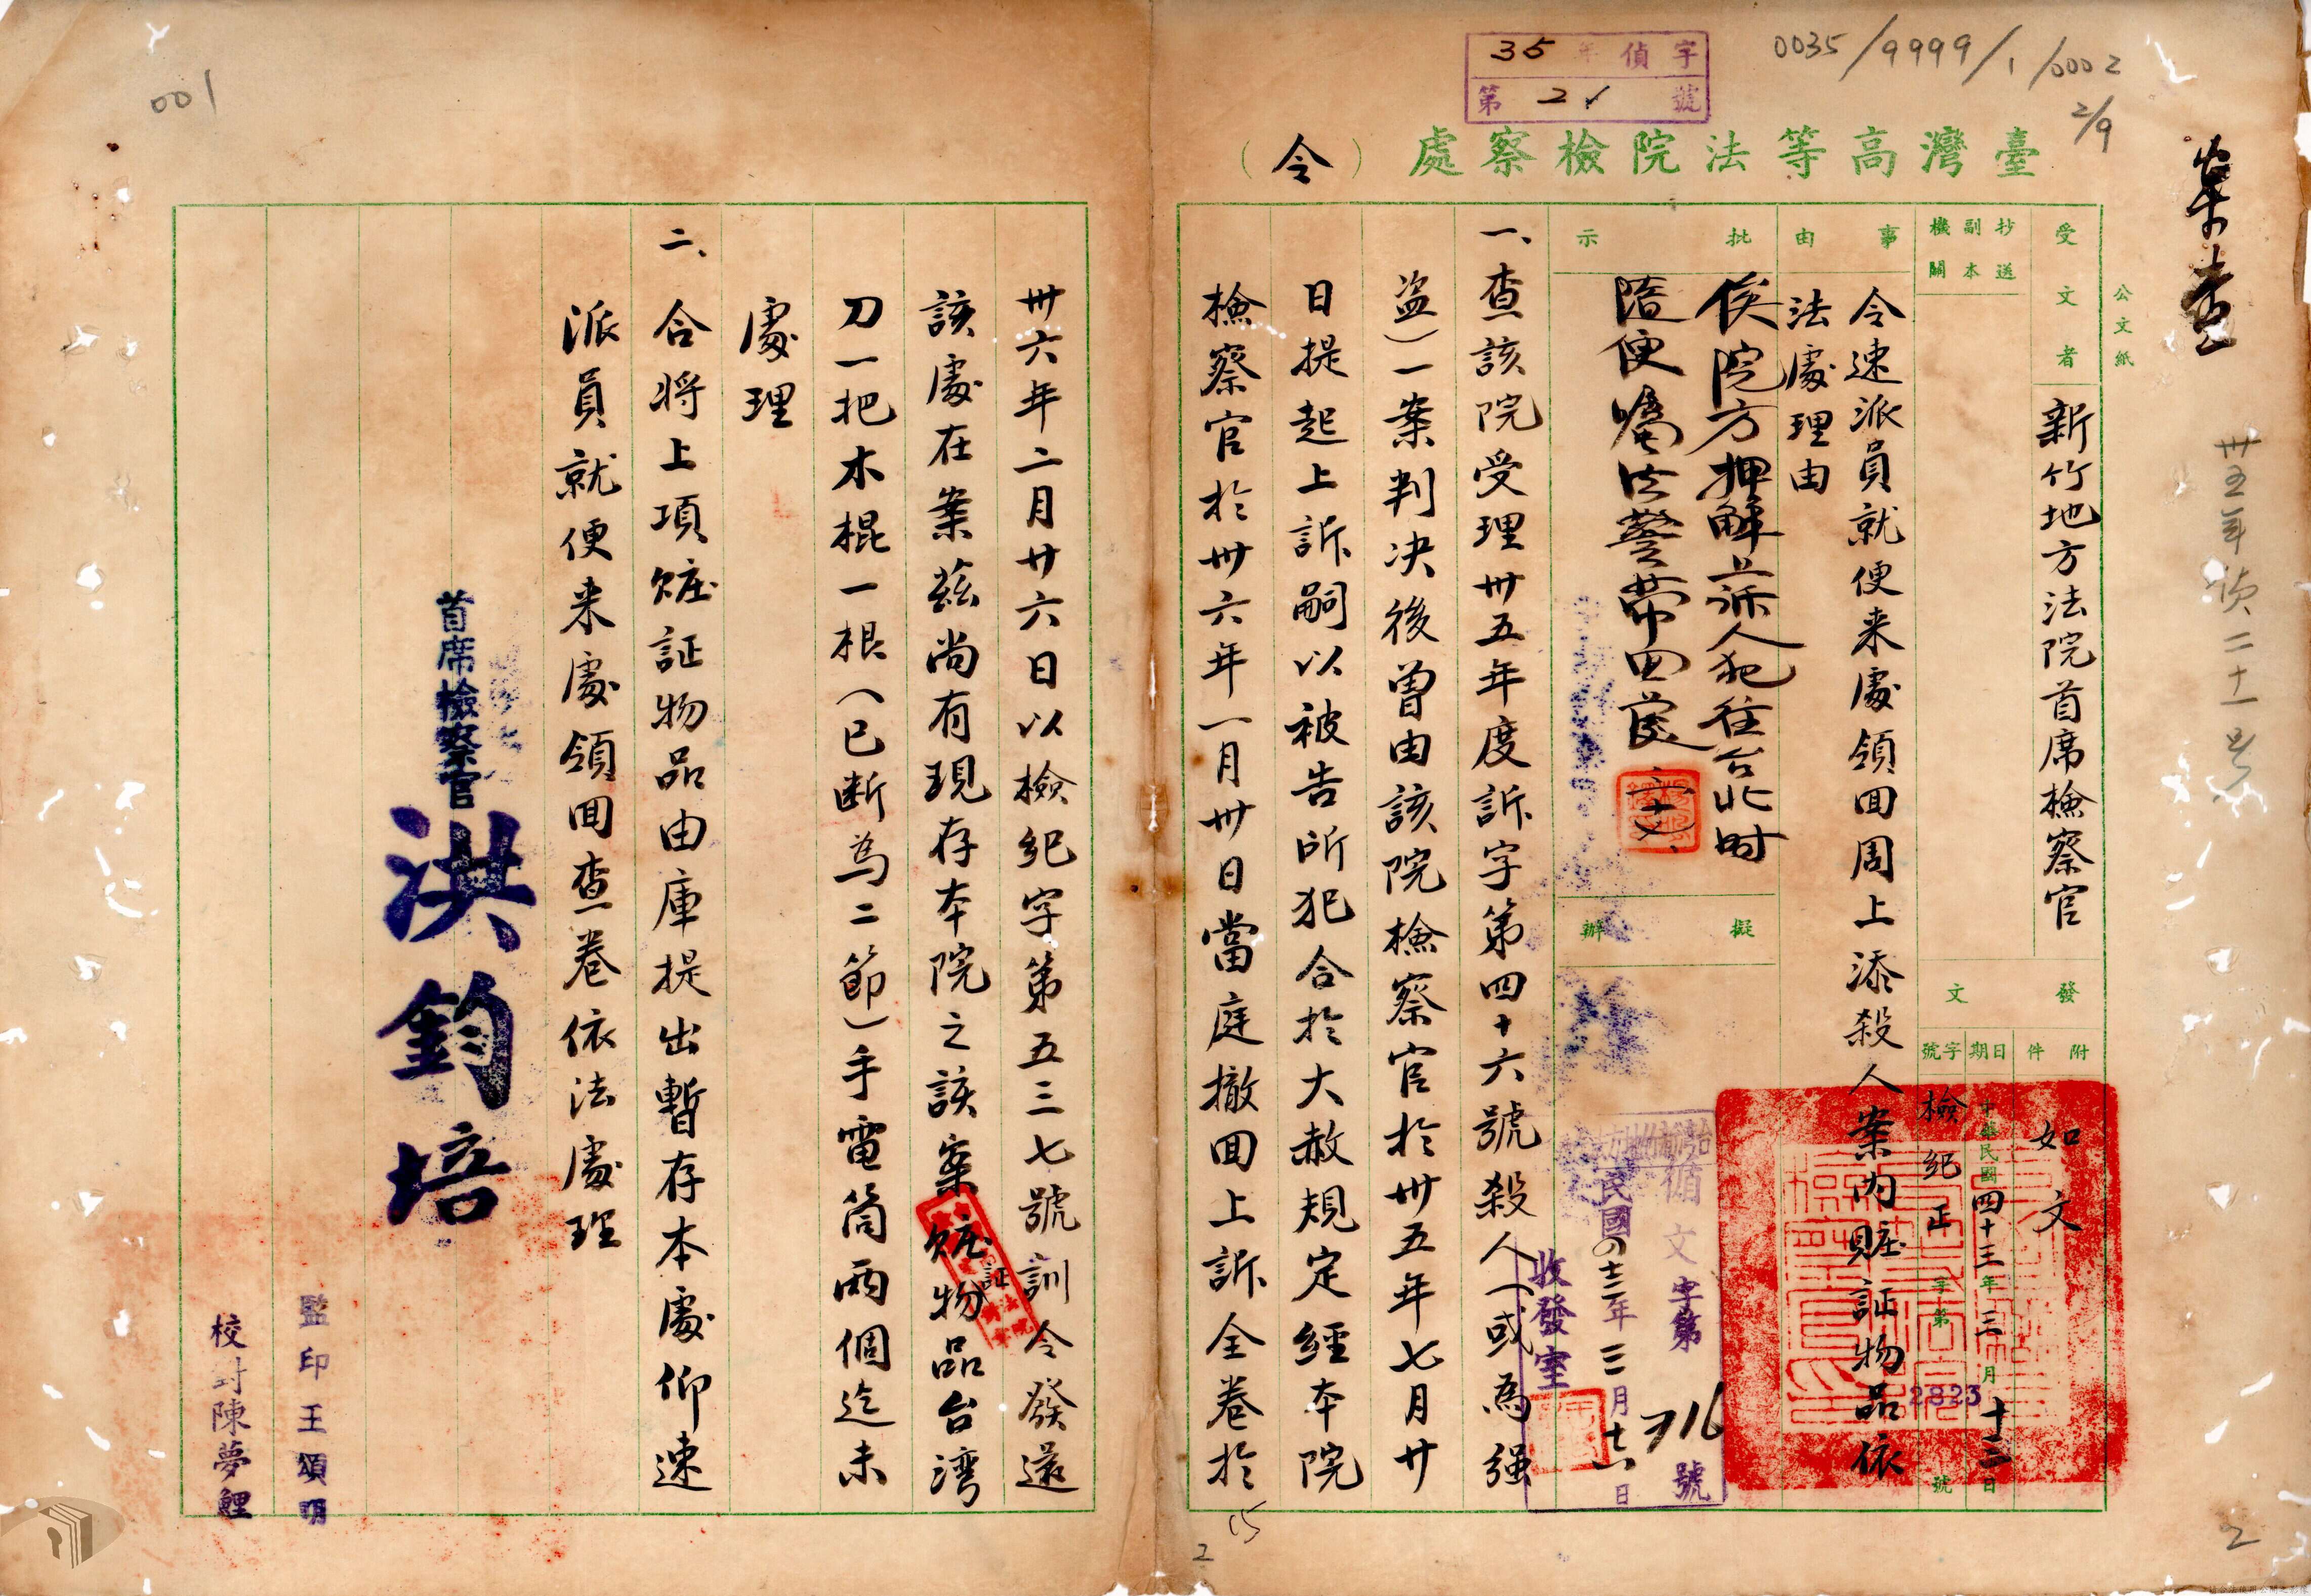 0035/9999/1/0002
2/9
001
35年偵字
第21號
臺灣高等法院檢察處（令）
公文紙
受文者
新竹地方法院首席檢察官
抄送副本機關
發文
附件
如文
日期
中華民國四十三年三月十三日
字號
檢紀正字第2823號
事由
令速派員就便来處領回周上添殺人案内賍証物品依
法處理由
批示
俟院方押解上訴人犯往台北时
隨便囑法警帶回
擬辦
收發室
民國四十三年三月十六日
文字第716號
一、查該院受理卅五年度訴字第四十六號殺人（或為强
盗）一案判决後曾由該院檢察官於卅五年七月廿
日提起上訴嗣以被告所犯合於大赦規定經本院
檢察官於卅六年一月卅日當庭撤回上訴全卷於
卅六年二月廿六日以檢紀字第五三七號訓令發還
該處在案茲尚有現存本院之該案賍証物品台湾
刀一把木棍一根（已断為二節）手電筒兩個迄未
處理
二、合將上項賍証物品由庫提出暫存本處仰速
派員就便来處領回查卷依法處理
首席檢察官
洪鈞培
監印王頌明
校對陳夢鯉
卅五年偵二十一号
15
2
2